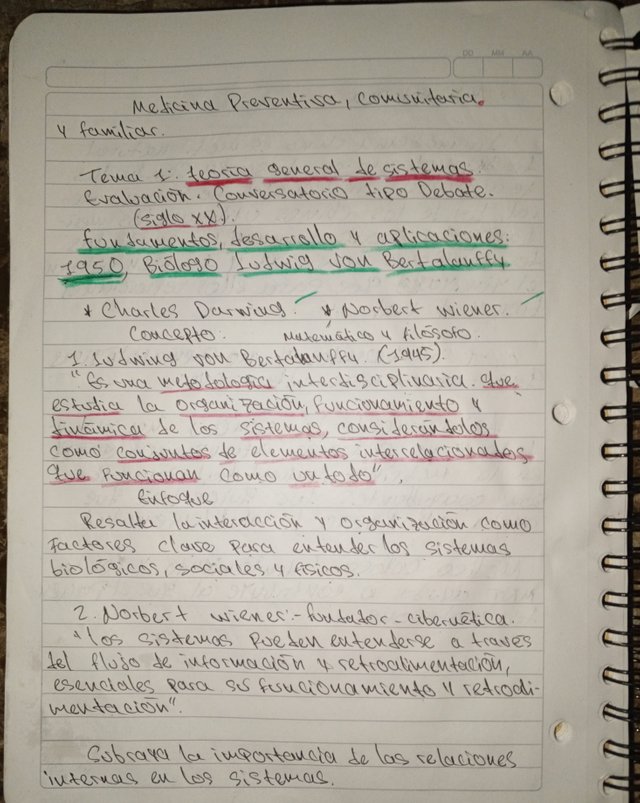 DD MM AA
Medicina Preventiva, Comunitaria.
y familiar.
Tema 1: teoría general de sistemas.
Evaluación. Conversatorio tipo Debate.
(siglo XX).
fundamentos, desarrollo y aplicaciones:
1950, Biólogo Ludwig von Bertalanffy
* Charles Darwing. * Norbert wiener.
Concepto: Matemático y filósofo.
1. Ludwing von Bertalanffy. (1945).
"Es una metodología interdisciplinaria. que
estudia la organización, funcionamiento y
dinámica de los sistemas, considerándolos
como conjuntos de elementos interrelacionados
que funcionan como un todo".
Enfoque
Resalta la interacción y organización como
factores clave para entender los sistemas
biológicos, sociales y físicos.
2. Norbert wiener:- fundador - cibernética.
"los sistemas pueden entenderse a través
del flujo de información y retroalimentación,
esenciales para su funcionamiento y retrodi-
mentación".
Subraya la importancia de las relaciones
internas en los sistemas.